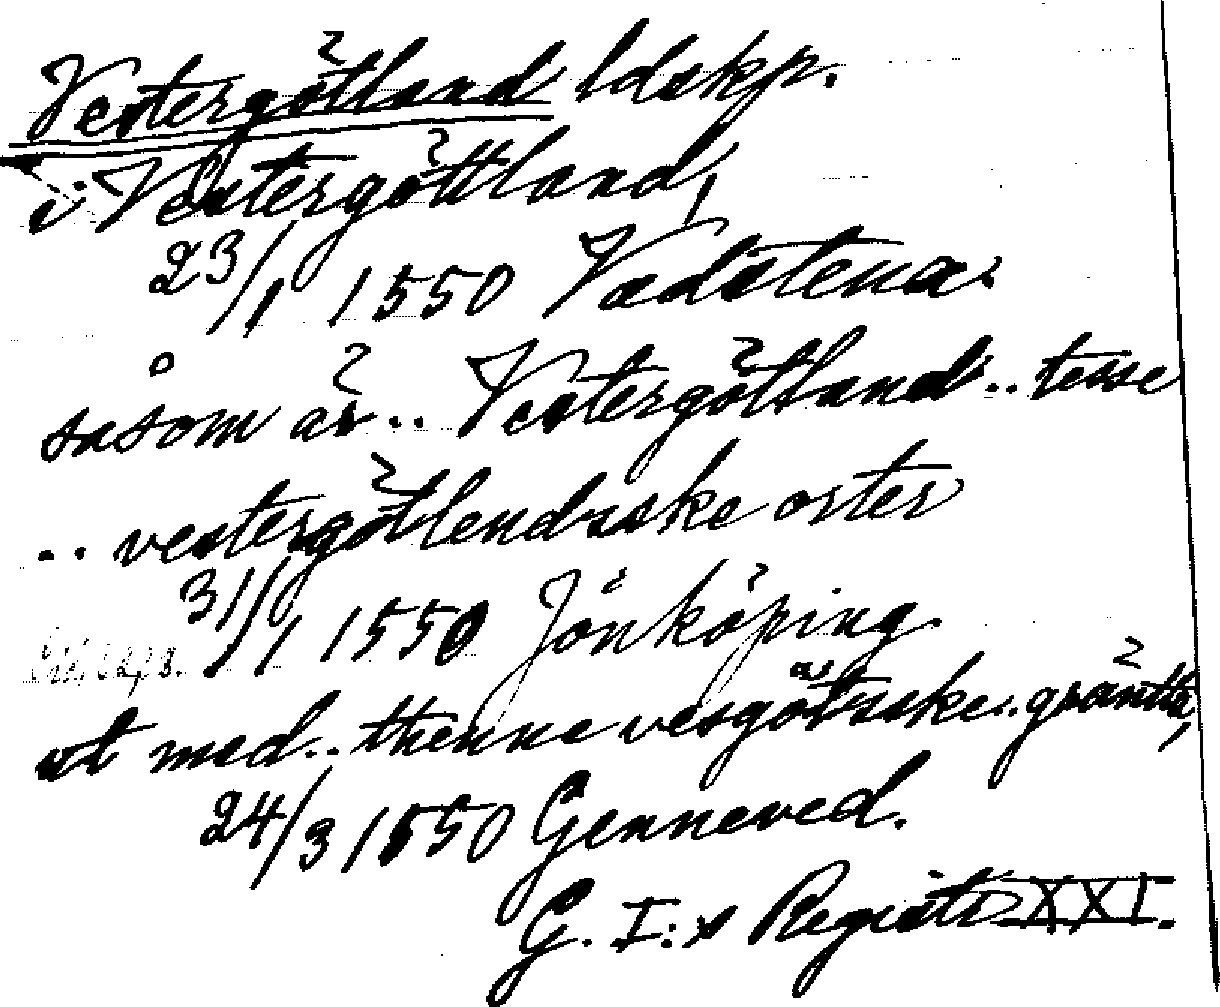 Vestergötland ldskp.
i Vestergöttland,
23/1 1550 Vadstena.
såsom är.. Vestergötland.. tesse
.. vestergötlendsske orter
31/1 1550 Jönköping.
ut med.. thenne vesgötsske.. gräntta,
24/3 1550 Genneved.
G. I:s Registr XXI.